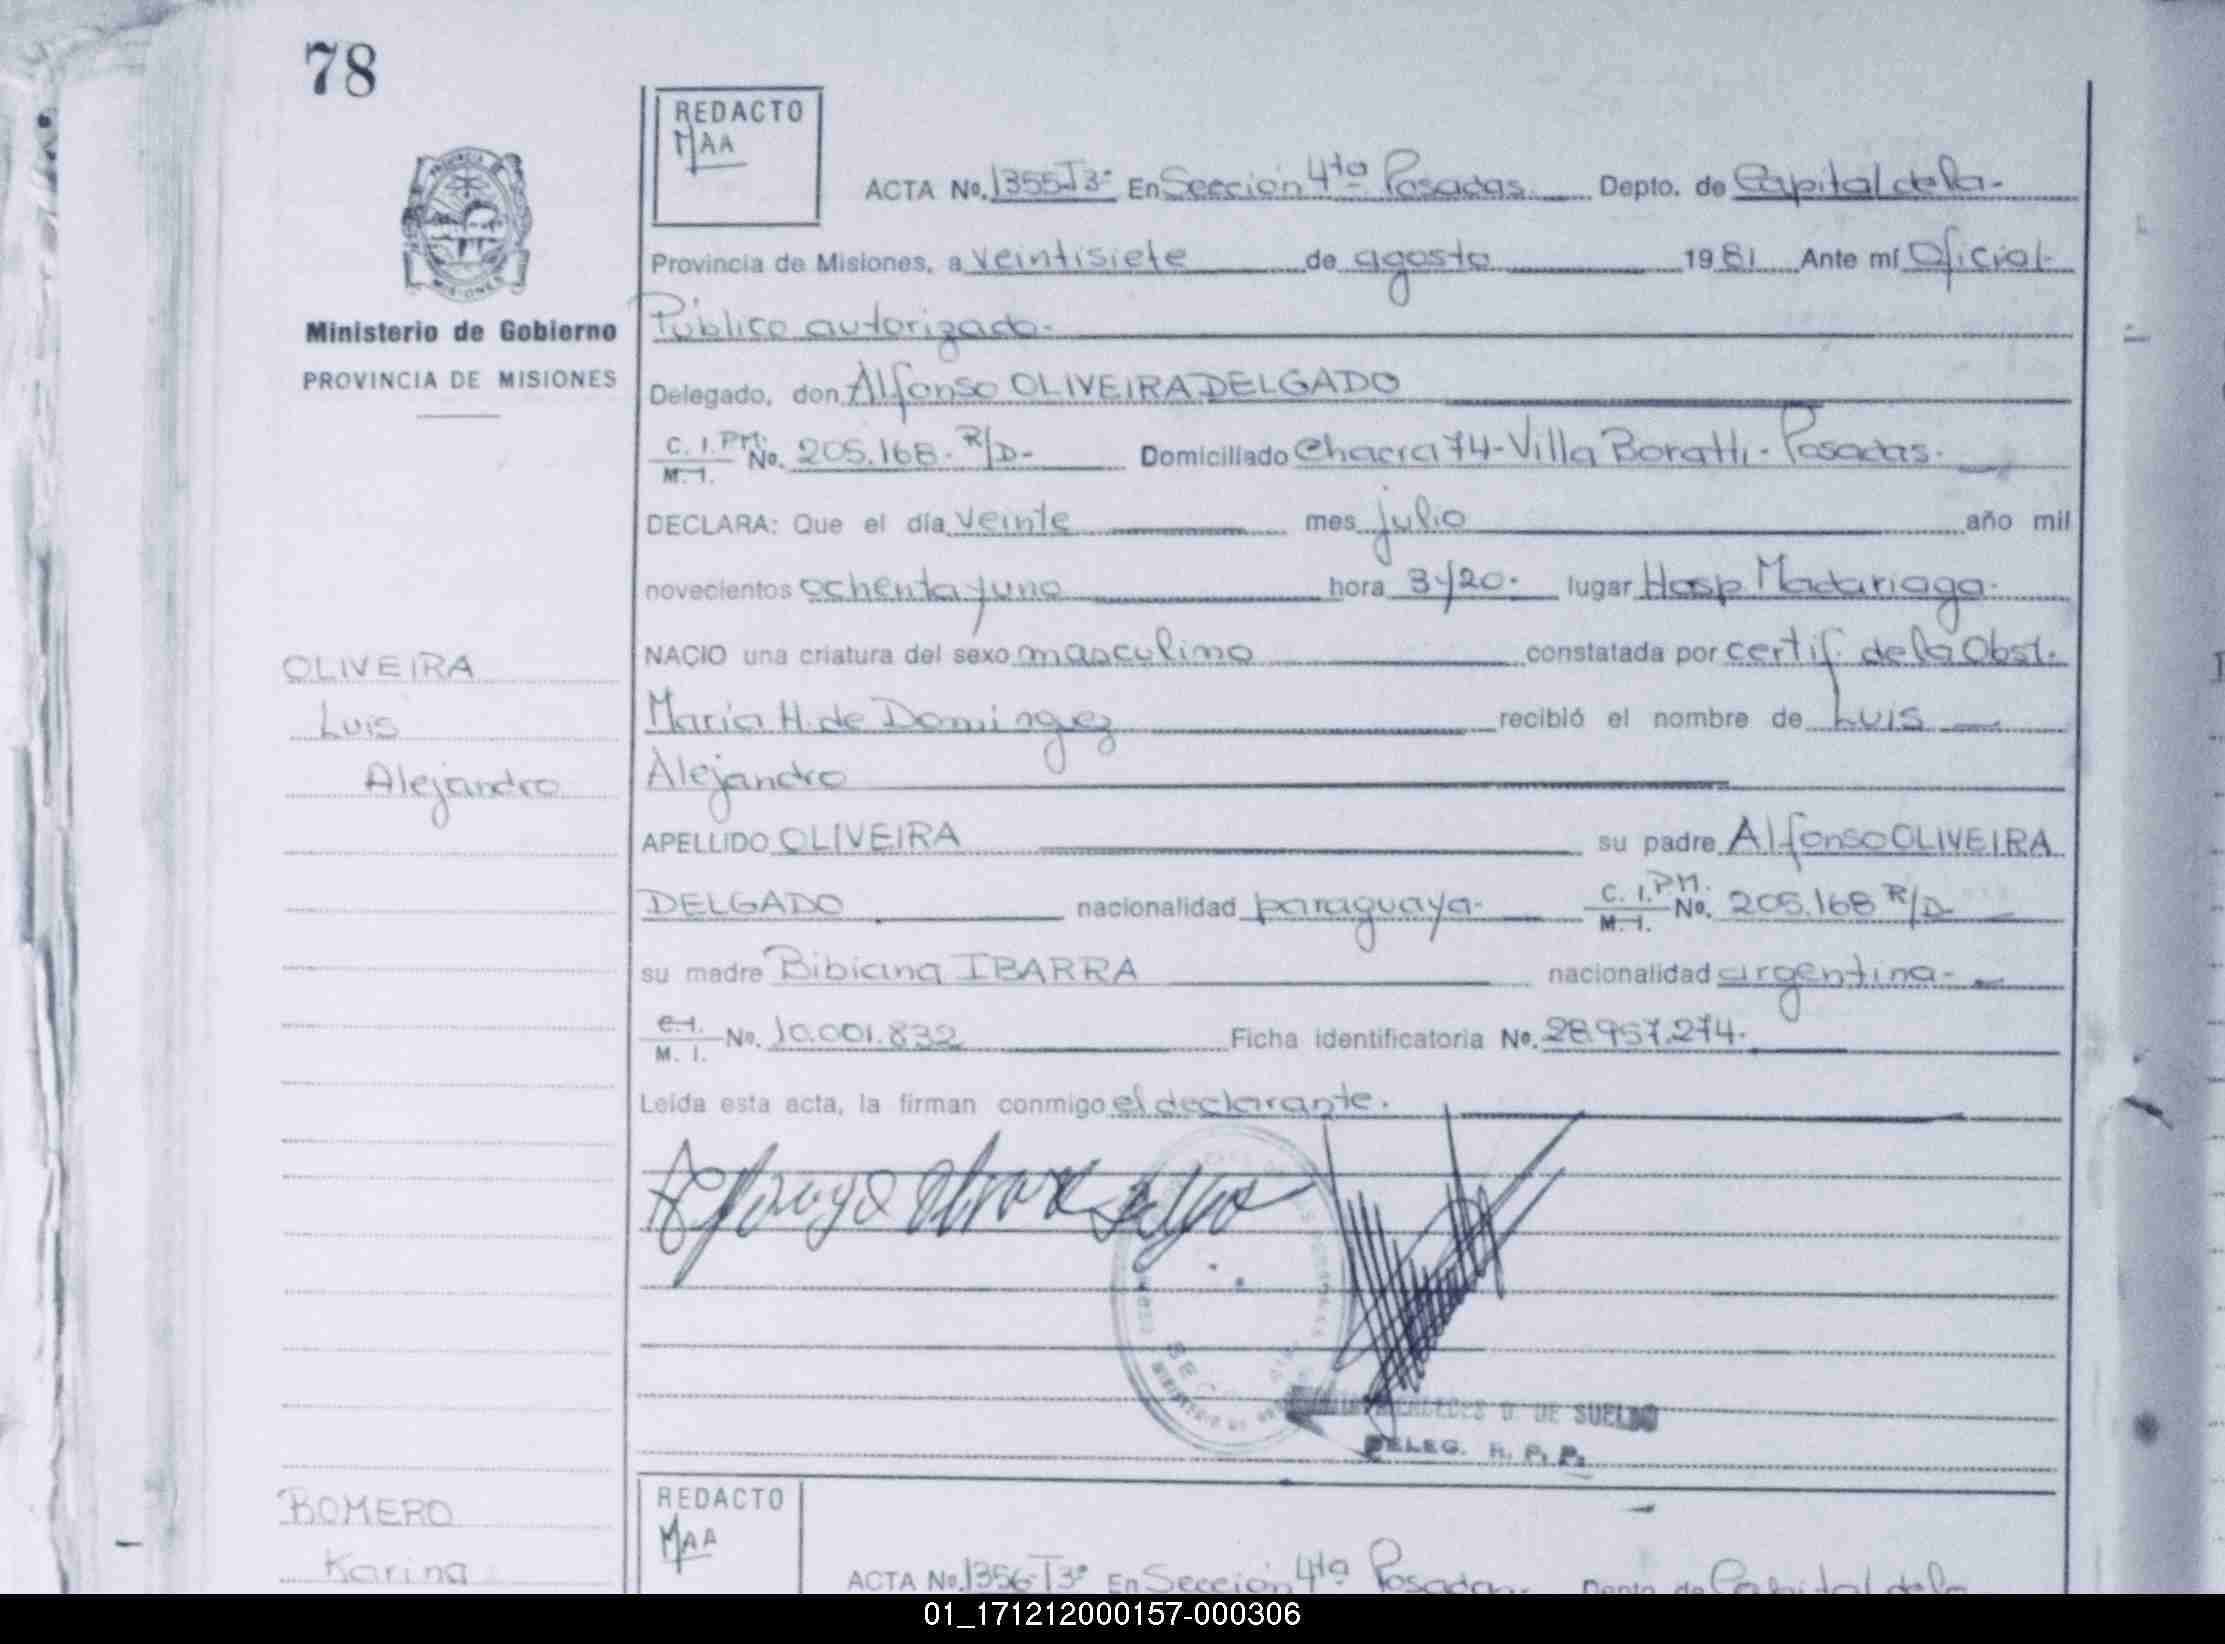 78
REDACTO
MAA
ACTA No. 1355-T3º En Sección 4ta Posadas. Depto. de Capital de la-
Provincia de Misiones, a veintisiete de agosto 1981 Ante mí Oficial
Público autorizado.
PROVINCIA DE
MISIONES
Ministerio de Gobierno
PROVINCIA DE MISIONES
Delegado, don Alfonso OLIVEIRA DELGADO
C. I. PM. No. 205.168. R/D- Domiciliado Chacra 74-Villa Boratti- Posadas.
M. I.
DECLARA: Que el día veinte mes julio año mil
novecientos ochenta y uno hora 3y20. lugar Hosp Madariaga.
NACIO una criatura del sexo masculino constatada por certif. de la Obst.
María H. de Domínguez recibió el nombre de Luis
Alejandro
OLIVEIRA
Luis
Alejandro
APELLIDO OLIVEIRA su padre Alfonso OLIVEIRA
DELGADO nacionalidad paraguaya- C. I. PM. No. 205.168 R/D
M. I.
su madre Bibiana IBARRA nacionalidad argentina-
C. I.
M. I. No. 10.001.832 Ficha identificatoria No. 28.957.274.
Leída esta acta, la firman conmigo el declarante.
MERCEDES D. DE SUELDO
DELEG. R. P. P.
ROMERO
Karina
REDACTO
MAA
ACTA No. 1356-T3º En Sección 4ta Posadas. Depto de Capital de la
01_171212000157-000306